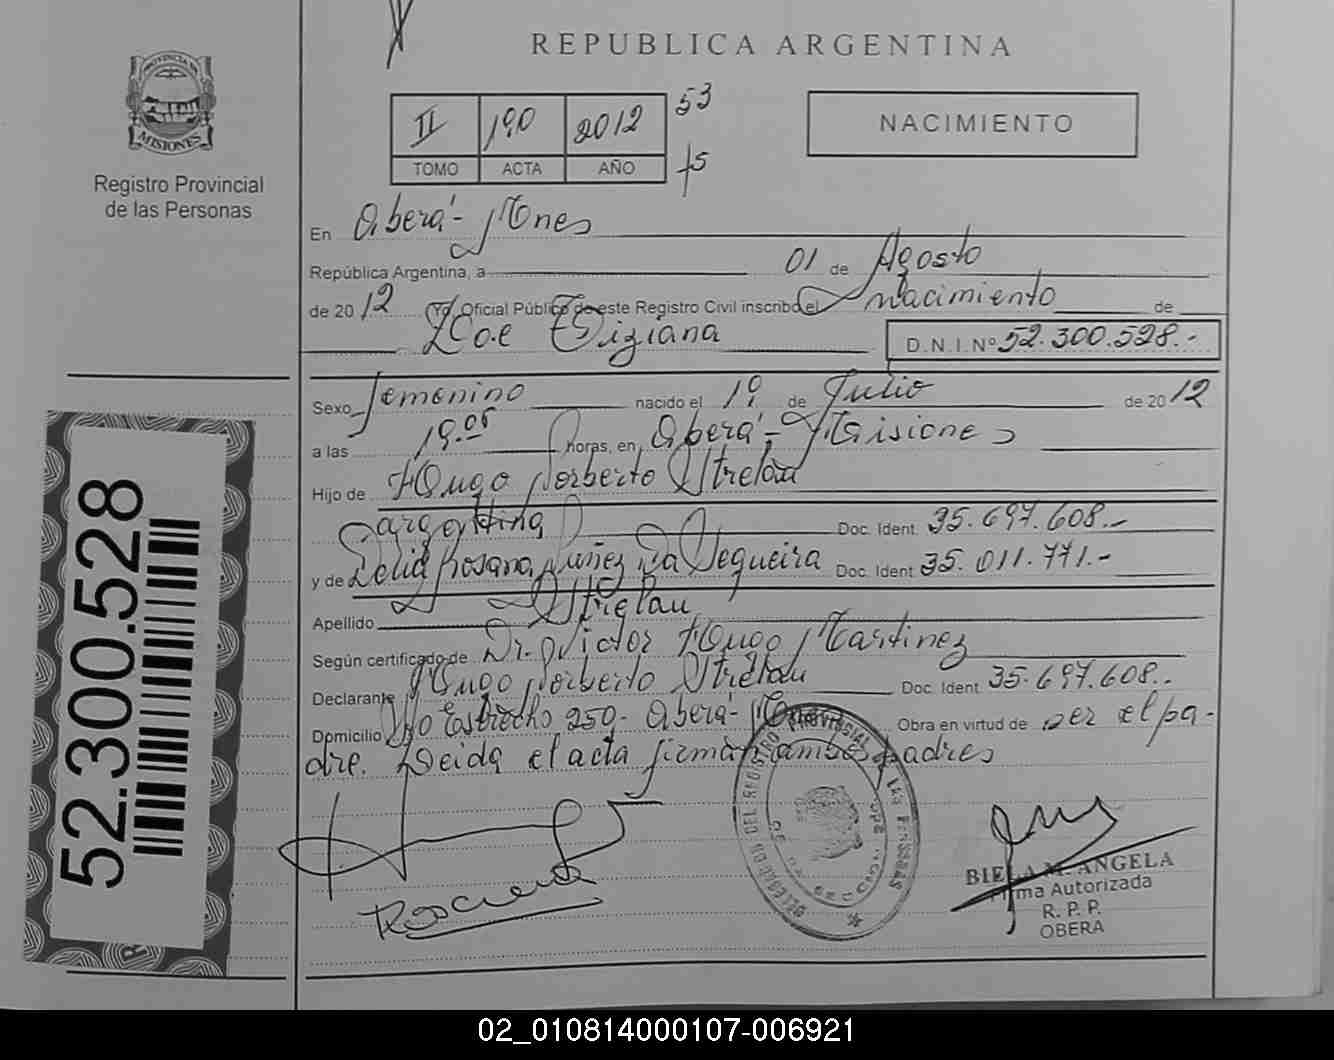 REPUBLICA ARGENTINA
PROVINCIA DE
MISIONES
Registro Provincial
de las Personas
II 190 2012 53
TOMO ACTA AÑO 75
NACIMIENTO
En Oberá - Mnes
República Argentina, a 01 de Agosto
de 2012 Yo, Oficial Público de este Registro Civil inscribo el nacimiento de
Zoe Tiziana D.N.I. Nº 52.300.528.-
Sexo femenino nacido el 1º de Julio de 2012
a las 19.05 horas, en Oberá - Misiones
Hijo de Hugo Norberto Strelau
argentina Doc. Ident. 35.697.608.-
y de Rosana Nuñez Da Sequeira Doc. Ident. 35.011.771.-
Apellido Strelau
Según certificado de Dr. Victor Hugo Martinez
Declarante Hugo Norberto Strelau Doc. Ident. 35.697.608.-
Domicilio Estrecho 250 - Oberá - Mnes Obra en virtud de ser el pa-
dre. Leida el acta firman ambos padres
DELEGACION DEL REGISTRO PROVINCIAL DE LAS PERSONAS
BIELA M. ANGELA
Firma Autorizada
R. P. P.
OBERA
52.300.528
02_010814000107-006921